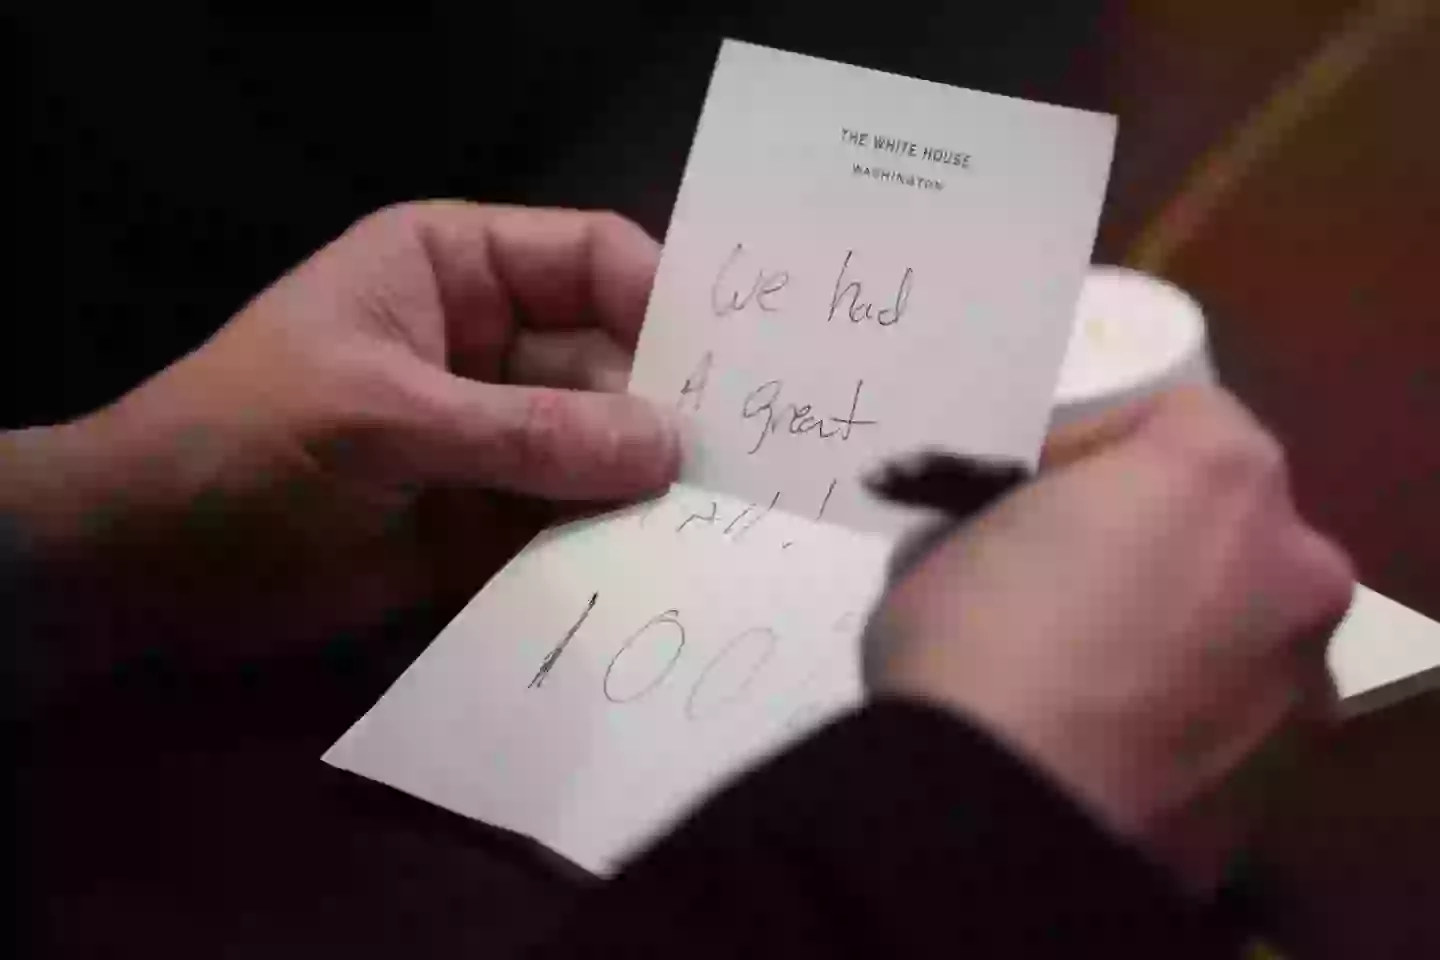 THE WHITE HOUSE
WASHINGTON
We had
A great
100